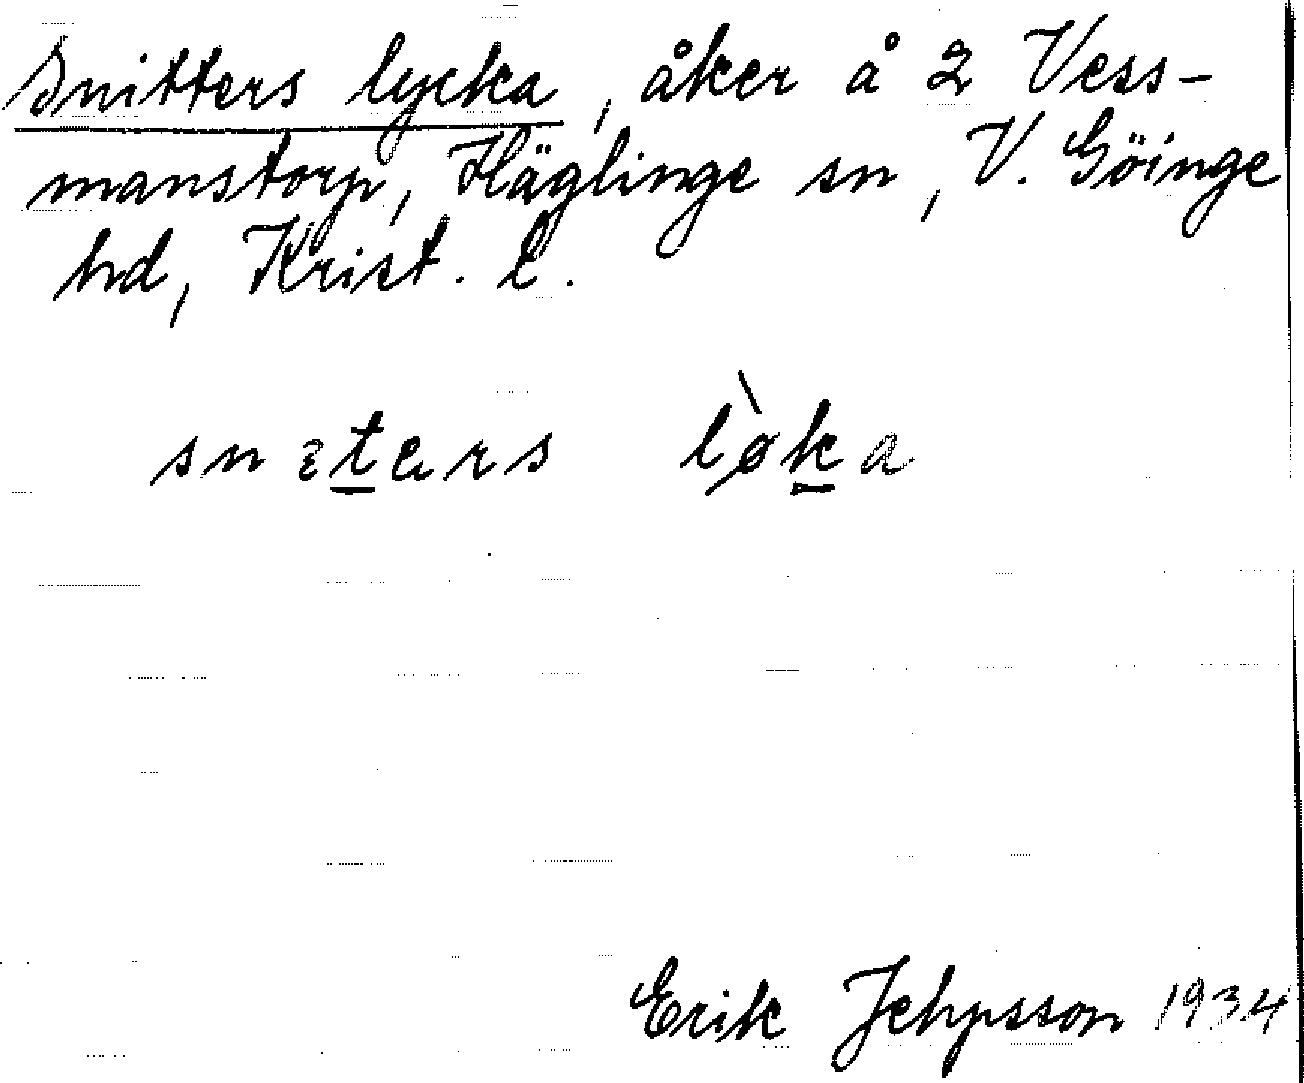 Snitters lycka, åker å 2 Vess-
manstorp, Häglinge sn, V. Göinge
hd, Krist. l.
Erik Jehpsson 1934